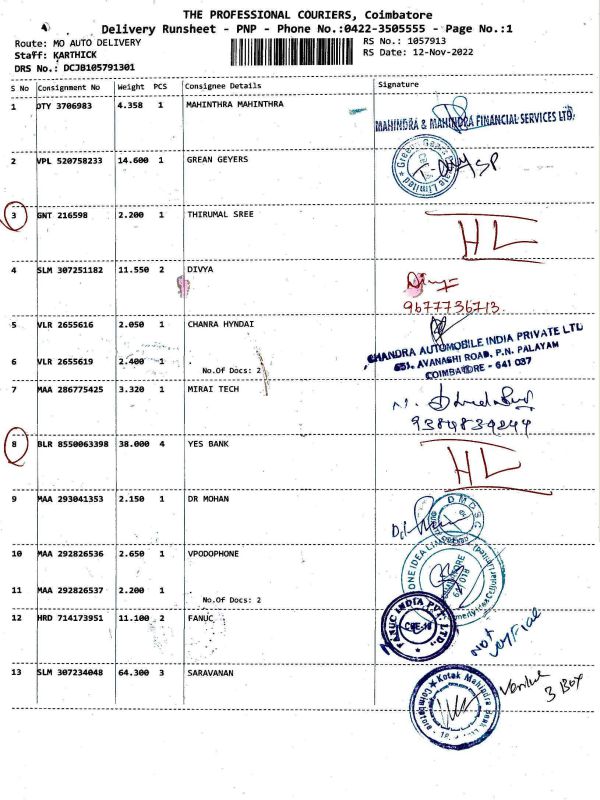 THE PROFESSIONAL COURIERS, Coimbatore
Delivery Runsheet - PNP - Phone No.:0422-3505555 - Page No.:1
Route: MO AUTO DELIVERY
RS No.: 1057913
Staff: KARTHICK
RS Date: 12-Nov-2022
DRS No.: DCJB105791301
S No Consignment No Weight PCS Consignee Details Signature
1 DTY 3706983 4.358 1 MAHINTHRA MAHINTHRA
MAHINDRA & MAHINDRA FINANCIAL SERVICES LTD.
2 VPL 520758233 14.600 1 GREAN GEYERS
3 GNT 216598 2.200 1 THIRUMAL SREE
HL
4 SLM 307251182 11.550 2 DIVYA
9677736713
5 VLR 2655616 2.050 1 CHANRA HYNDAI
CHANDRA AUTOMOBILE INDIA PRIVATE LTD
651, AVANASHI ROAD, P.N. PALAYAM
COIMBATORE - 641 037
6 VLR 2655619 2.400 1 .
No.Of Docs: 2
7 MAA 286775425 3.320 1 MIRAI TECH
9384834244
8 BLR 8550063398 38.000 4 YES BANK
HL
9 MAA 293041353 2.150 1 DR MOHAN
DMDSC
10 MAA 292826536 2.650 1 VPODOPHONE
11 MAA 292826537 2.200 1 .
No.Of Docs: 2
12 HRD 714173951 11.100 2 FANUC
FANUC INDIA PVT. LTD.,
CBE-18
Not
13 SLM 307234048 64.300 3 SARAVANAN
Kotak Mahindra Bank
Coimbatore
3 Box